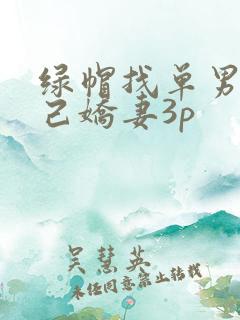 绿帽找单男
己娇妻3p
吴慧英
未经同意禁止转载